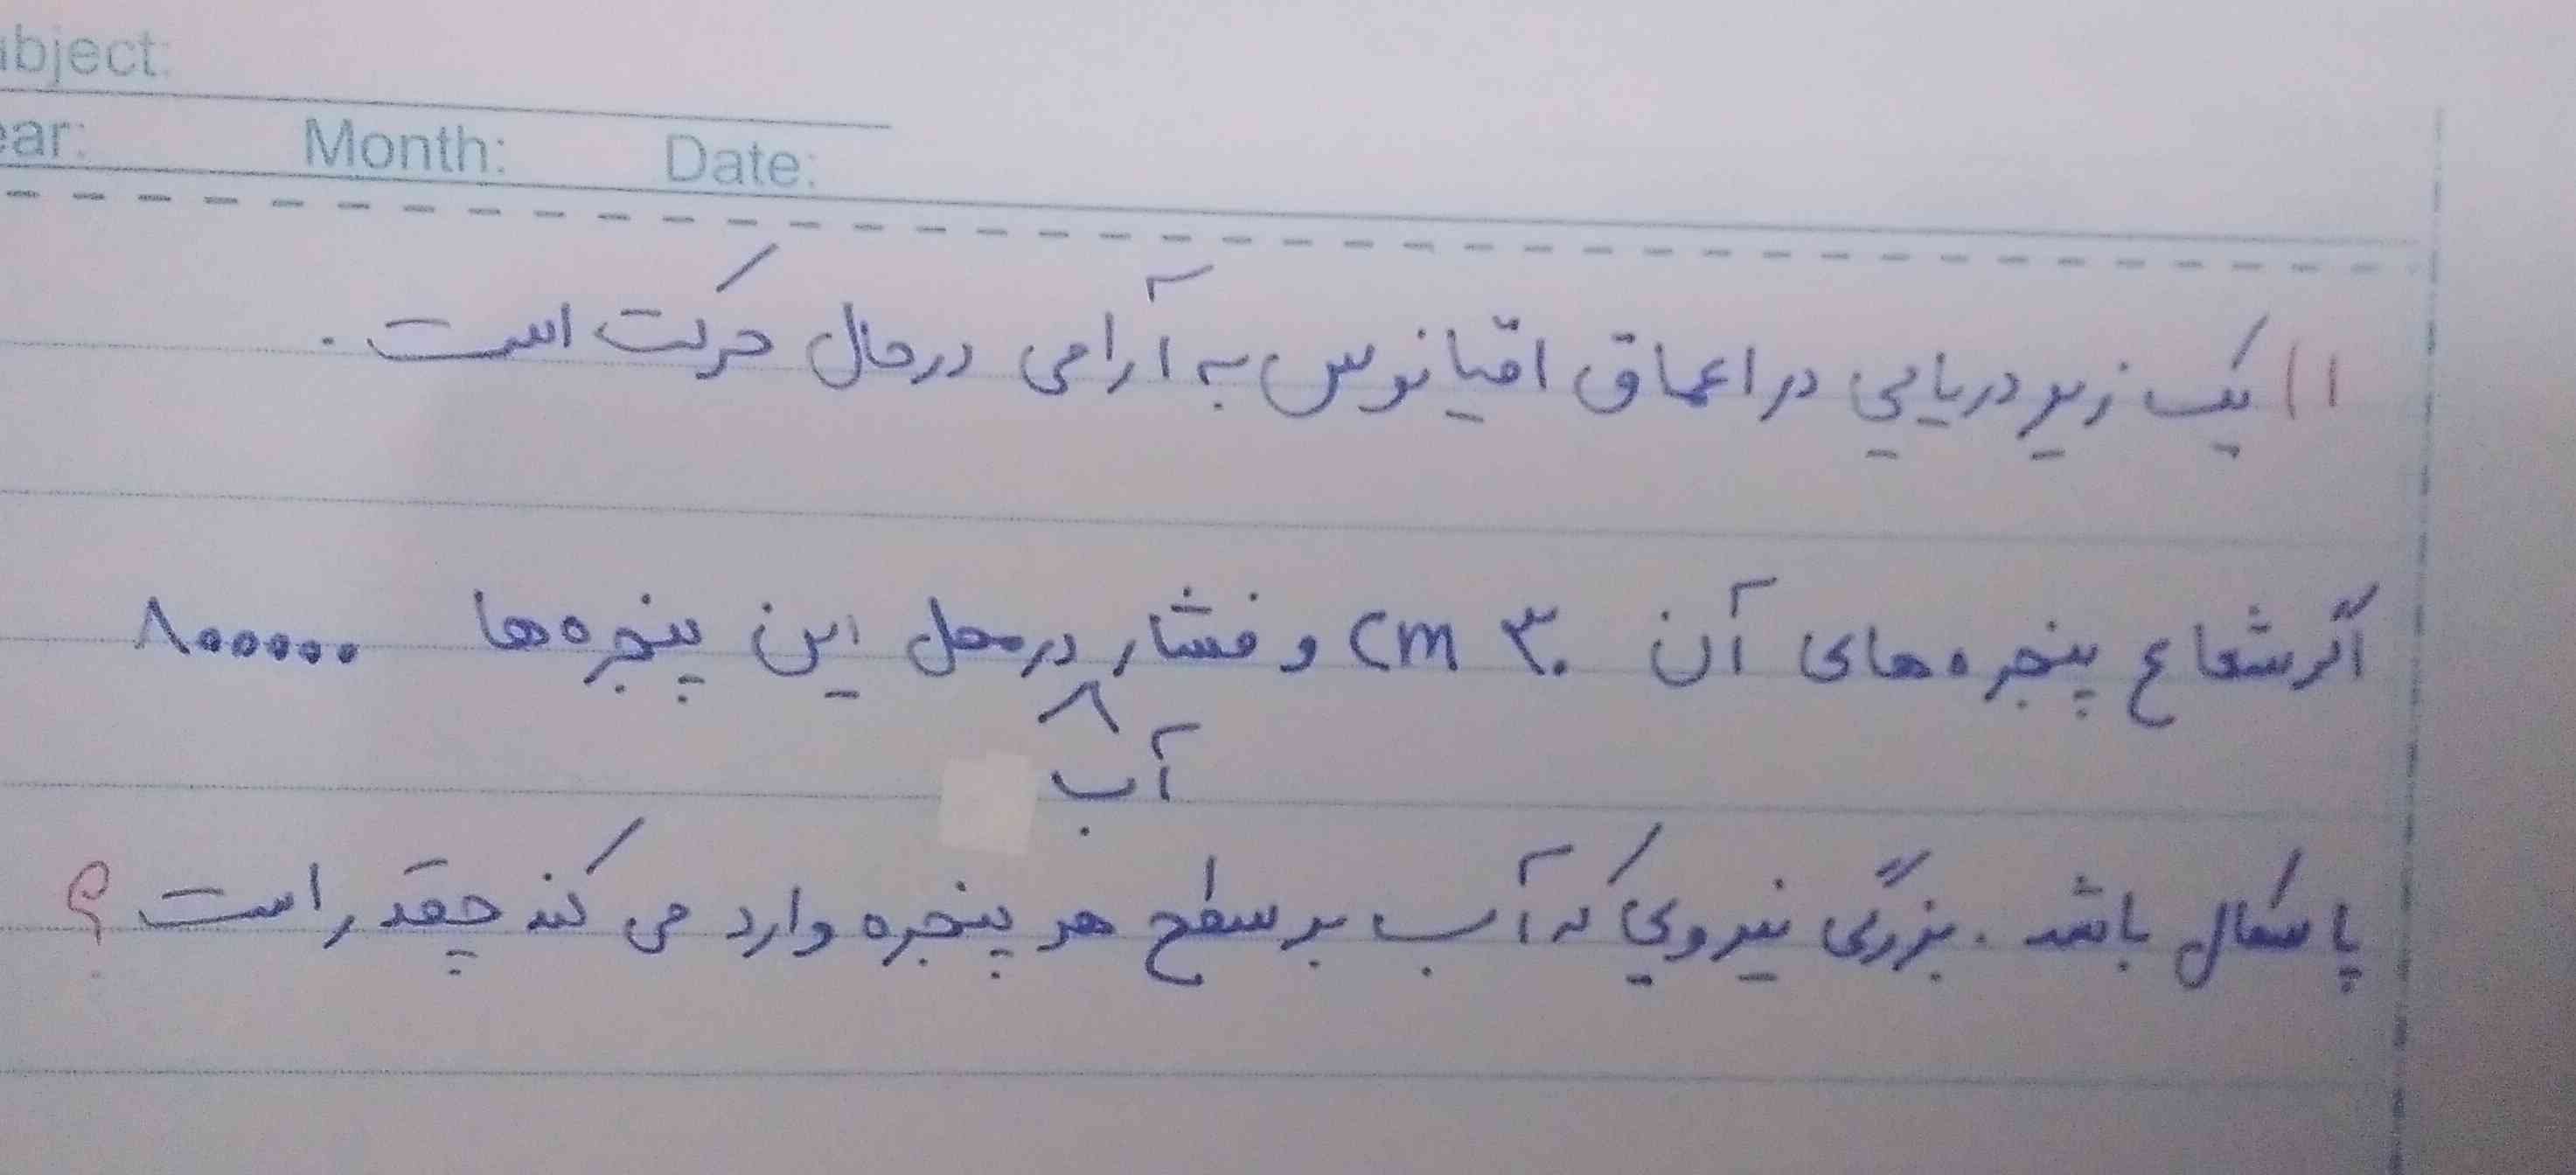 ubject:
ear: Month: Date:
۱) یک زیر دریایی در اعماق اقیانوس به آرامی درحال حرکت است.
اگر شعاع پنجره‌های آن ۳۰ cm و فشار درمحل این پنجره‌ها ۸۰۰۰۰۰
آب
پاسکال باشد. بزرگی نیرویی که آب بر سطح هر پنجره وارد می کند چقدر است؟